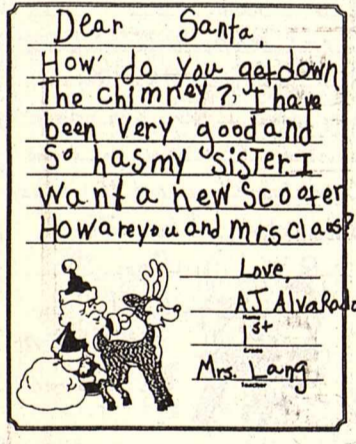 Dear Santa,
How do you get down
The chimney?, I have
been very good and
So has my sister. I
want a new Scooter
How are you and mrs claus?
Love,
AJ Alvarado
Name
1st
Grade
Mrs. Lang
Teacher